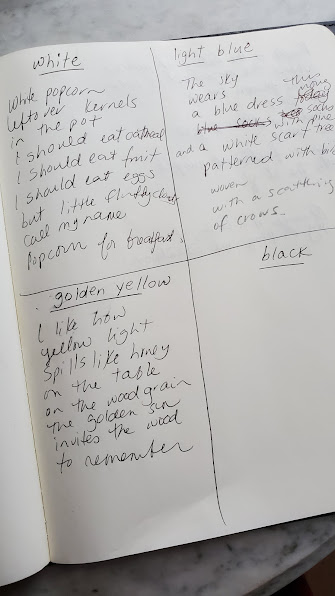 white
White popcorn
leftover kernels
in the pot
I should eat oatmeal
I should eat fruit
I should eat eggs
but little fluffy clouds
call my name
Popcorn for breakfast.
light blue
The sky this
wears
a blue dress
blue socks with pine
and a white scarf
patterned with
woven
with a scattering
of crows.
golden yellow
I like how
yellow light
Spills like honey
on the table
on the wood grain
the golden sun
invites the wood
to remember
black